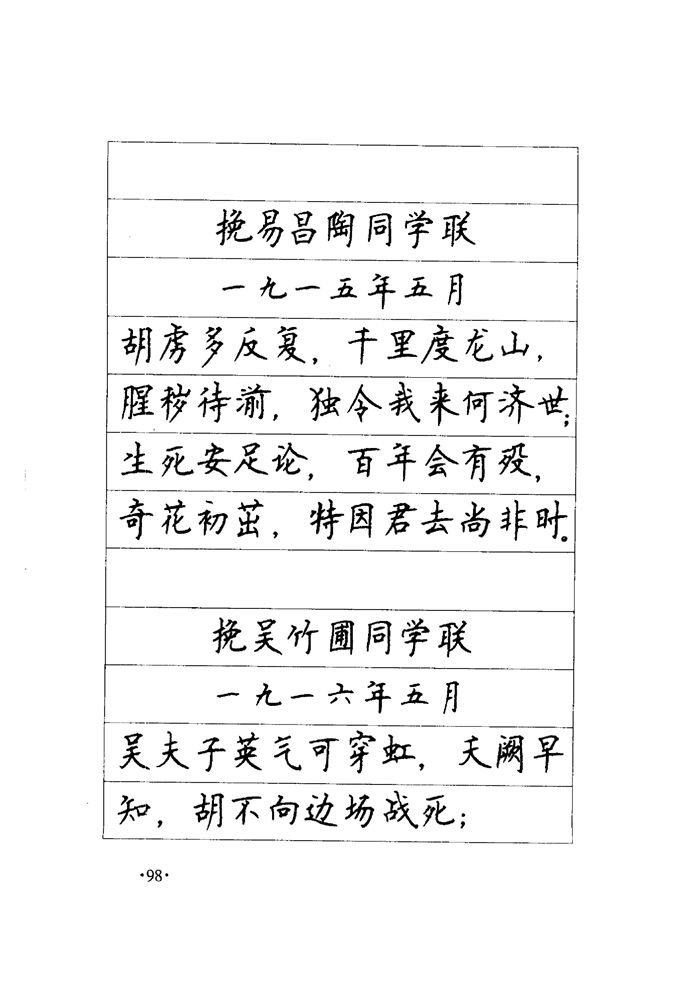 挽易昌陶同学联
一九一五年五月
胡虏多反复，千里度龙山，
腥秽待湔，独令我来何济世；
生死安足论，百年会有殁，
奇花初茁，特因君去尚非时。
挽吴竹圃同学联
一九一六年五月
吴夫子英气可穿虹，夭阙早
知，胡不向边场战死；
·98·